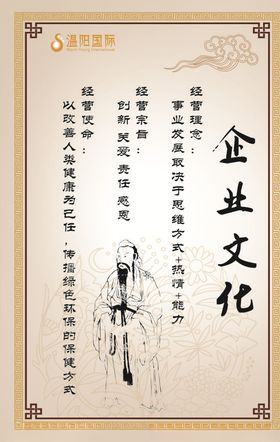 温阳国际
企业文化
经营理念：
事业发展取决于思维方式+热情+能力
经营宗旨：
创新 关爱 责任 感恩
经营使命：
以改善人类健康为己任，传播绿色环保的保健方式